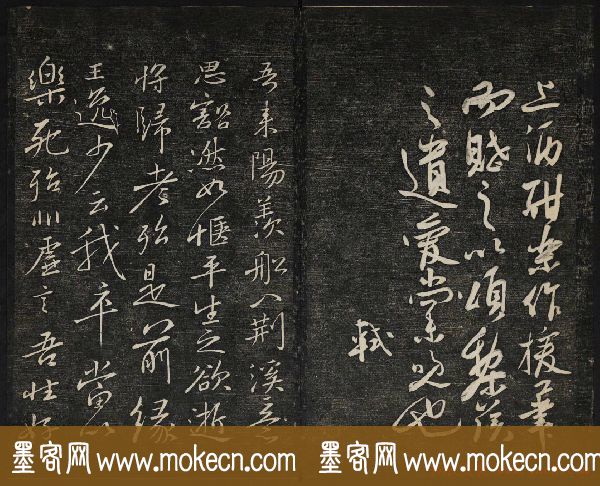 上酒酣樂作援筆
而賦之以頌黎侯
之遺愛尚未晚也
軾
吾來陽羨船入荆溪意
思豁然如愜平生之欲逝
將歸老殆是前緣
王逸少云我卒當以
樂死殆非虛言吾性好
墨客网 www.mokecn.com 墨客网 www.mokecn.com